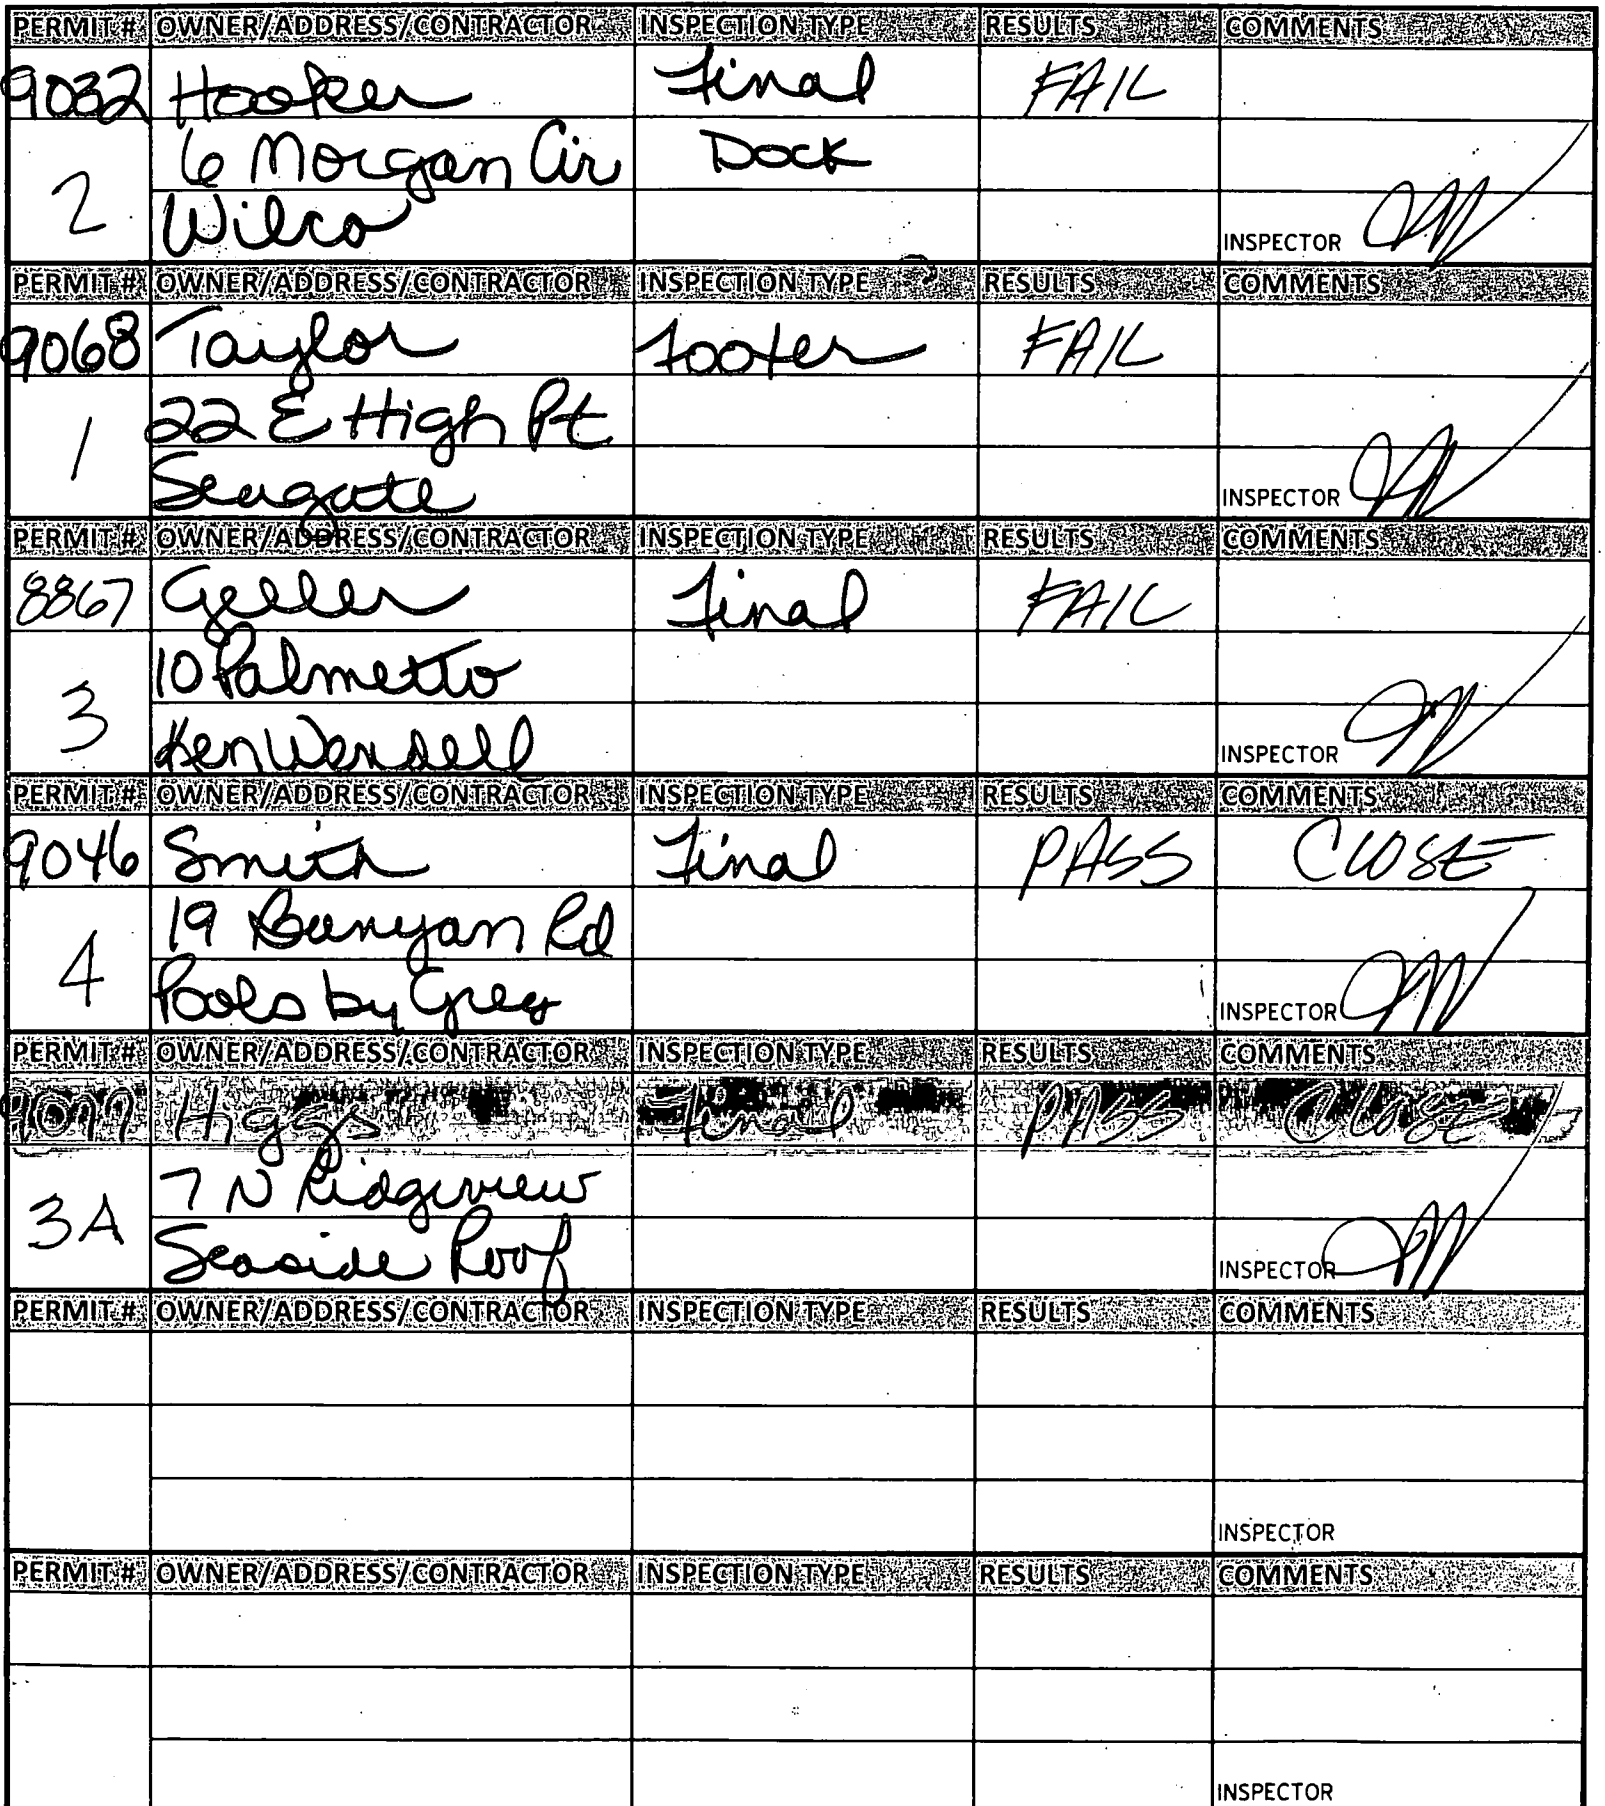 PERMIT # OWNER/ADDRESS/CONTRACTOR INSPECTION TYPE RESULTS COMMENTS
9032 Hooker Final FAIL
2 6 Morgan Cir Dock
Wilco INSPECTOR
PERMIT # OWNER/ADDRESS/CONTRACTOR INSPECTION TYPE RESULTS COMMENTS
9068 Taylor Footer FAIL
1 22 E High Pt
Seagate INSPECTOR
PERMIT # OWNER/ADDRESS/CONTRACTOR INSPECTION TYPE RESULTS COMMENTS
8867 Geller Final FAIL
3 10 Palmetto
Ken Wendell INSPECTOR
PERMIT # OWNER/ADDRESS/CONTRACTOR INSPECTION TYPE RESULTS COMMENTS
9046 Smith Final PASS CLOSE
4 19 Banyan Rd
Pools by Greg INSPECTOR
PERMIT # OWNER/ADDRESS/CONTRACTOR INSPECTION TYPE RESULTS COMMENTS
Higgs Final PASS CLOSE
3A 7 N Ridgeview
Seaside Roof INSPECTOR
PERMIT # OWNER/ADDRESS/CONTRACTOR INSPECTION TYPE RESULTS COMMENTS
INSPECTOR
PERMIT # OWNER/ADDRESS/CONTRACTOR INSPECTION TYPE RESULTS COMMENTS
INSPECTOR